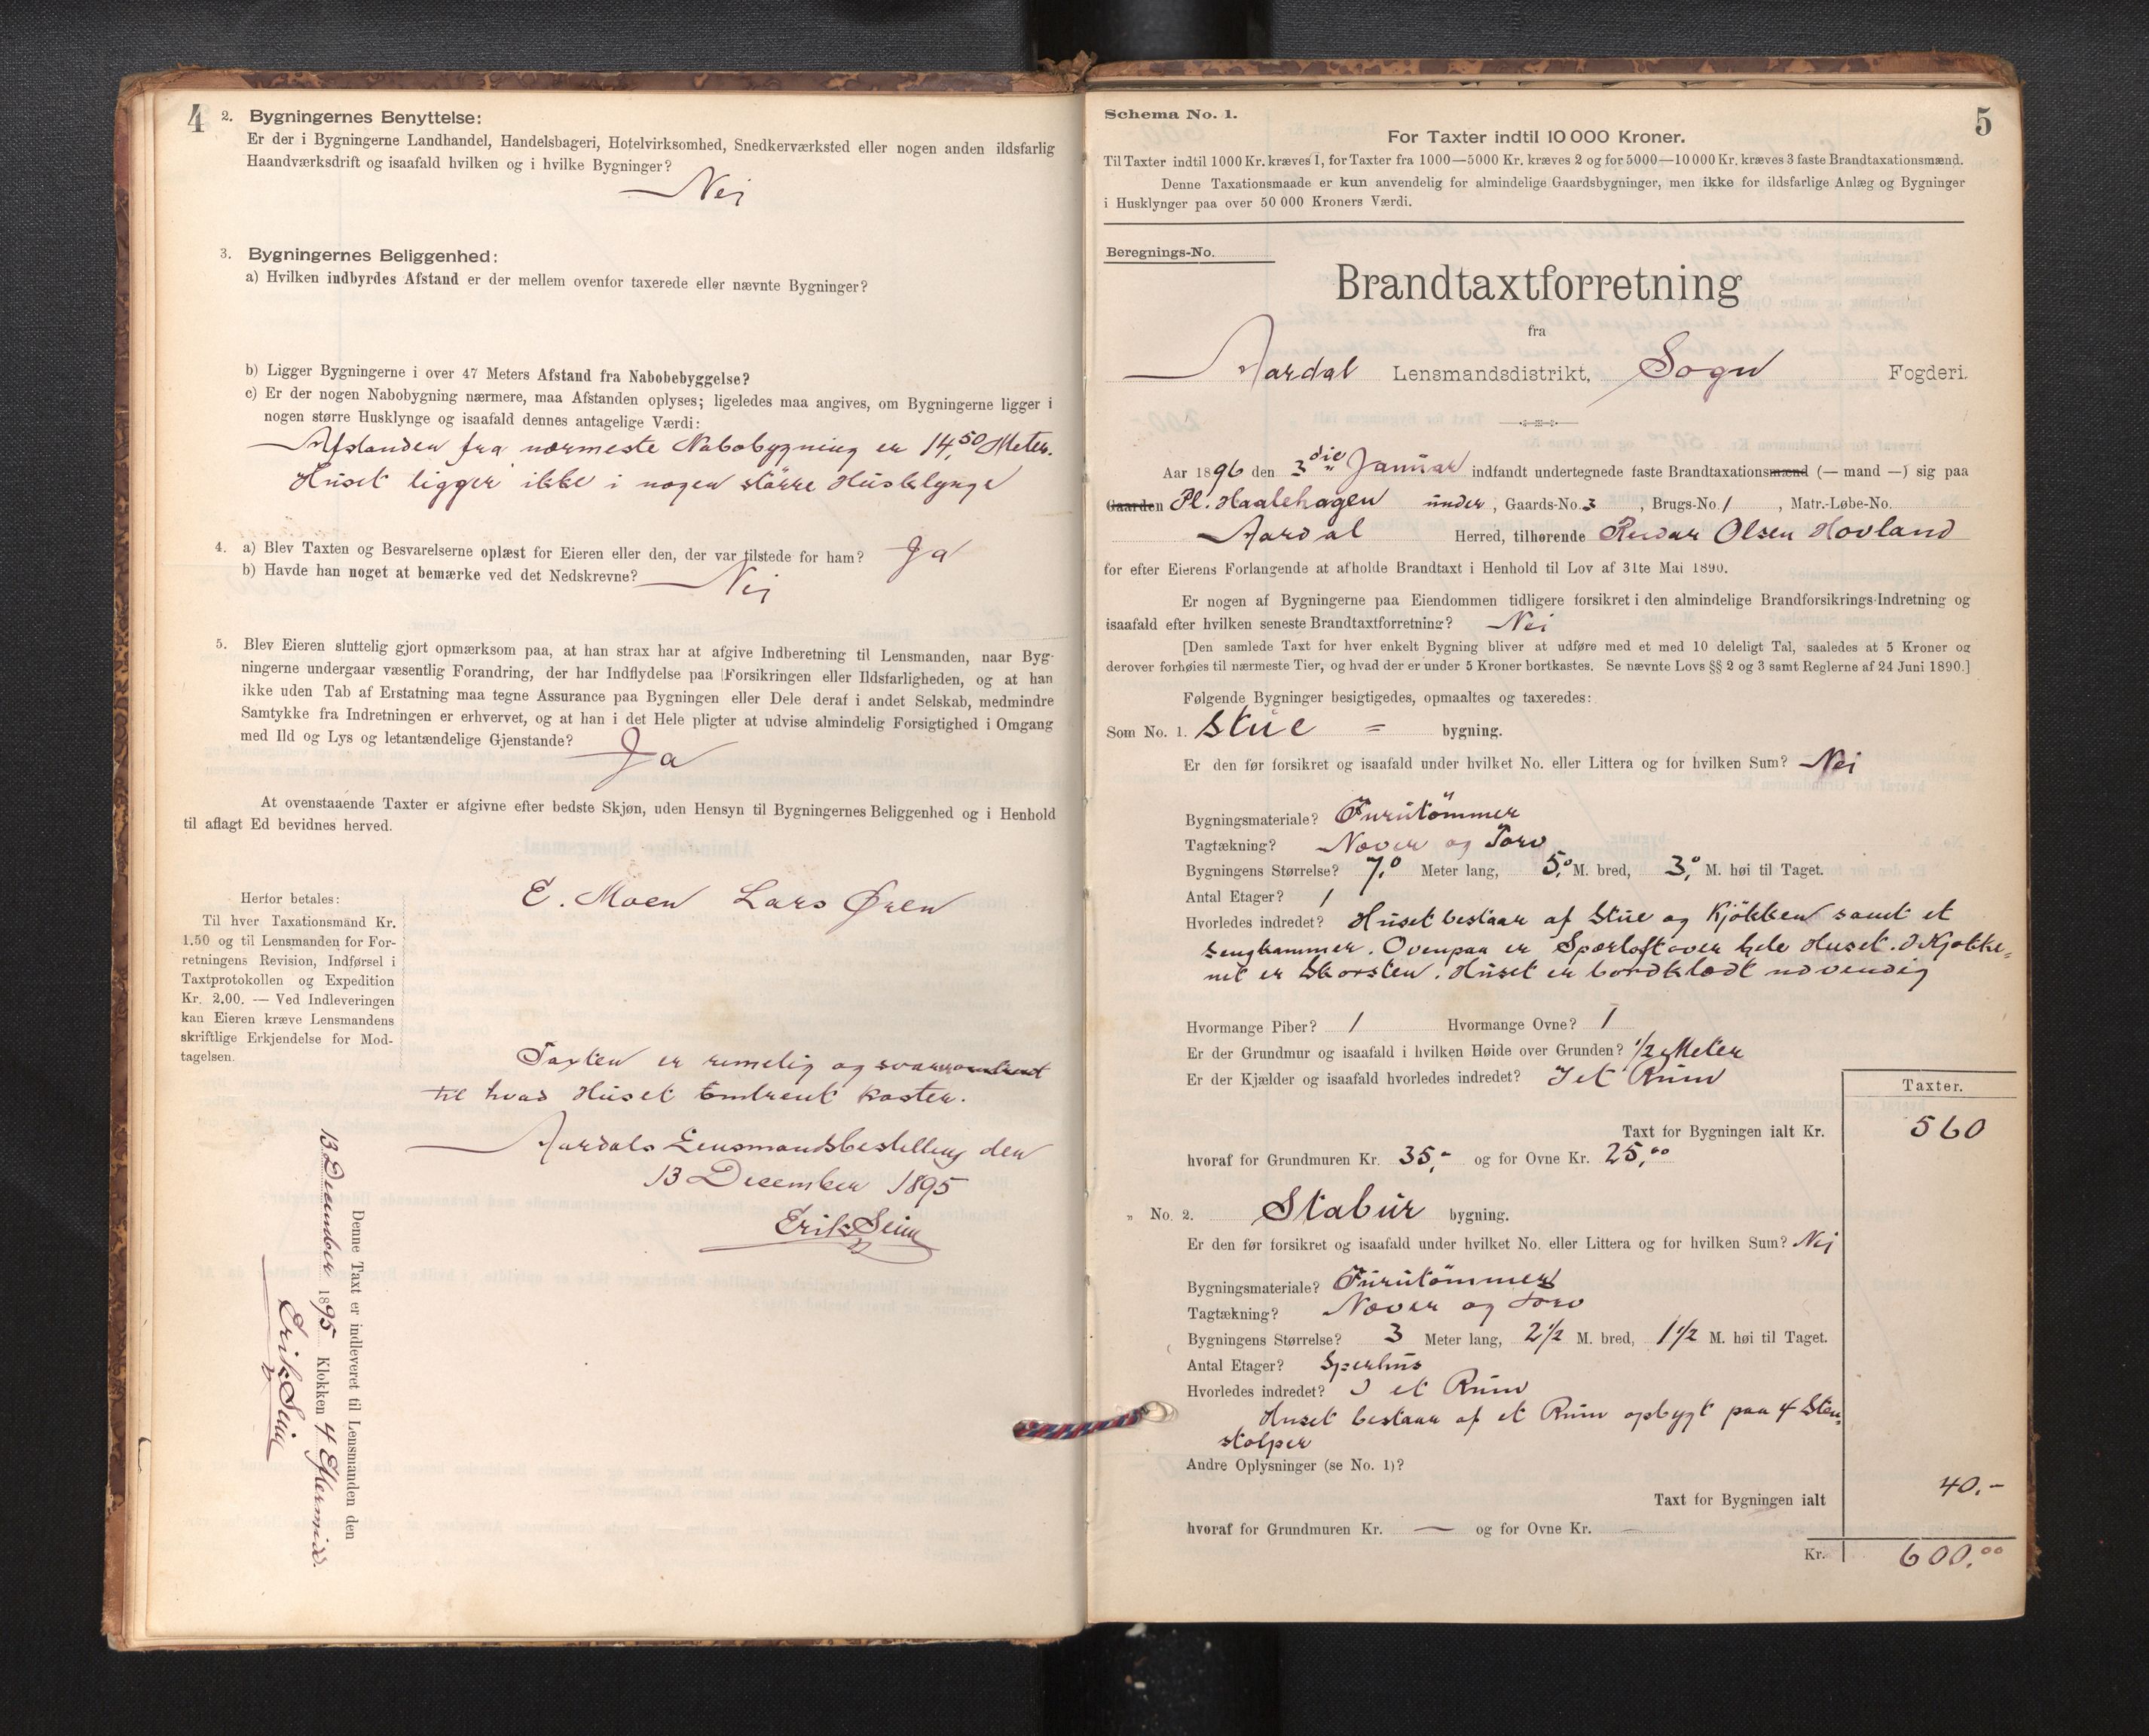 4
2. Bygningernes Benyttelse:
Er der i Bygningerne Landhandel, Handelsbageri, Hotelvirksomhed, Snedkerværksted eller nogen anden ildsfarlig
Haandværksdrift og isaafald hvilken og i hvilke Bygninger?
Nei
3. Bygningernes Beliggenhed:
a) Hvilken indbyrdes Afstand er der mellem ovenfor taxerede eller nævnte Bygninger?
b) Ligger Bygningerne i over 47 Meters Afstand fra Nabobebyggelse?
c) Er der nogen Nabobygning nærmere, maa Afstanden oplyses; ligeledes maa angives, om Bygningerne ligger i
nogen større Husklynge og isaafald dennes antagelige Værdi:
Afstanden fra nærmeste Nabobygning er 14,50 Meter.
Huset ligger ikke i nogen større Husklynge
4. a) Blev Taxten og Besvarelserne oplæst for Eieren eller den, der var tilstede for ham? Ja
b) Havde han noget at bemærke ved det Nedskrevne? Nei
5. Blev Eieren sluttelig gjort opmærksom paa, at han strax har at afgive Indberetning til Lensmanden, naar Byg-
ningerne undergaar væsentlig Forandring, der har Indflydelse paa Forsikringen eller Ildsfarligheden, og at han
ikke uden Tab af Erstatning maa tegne Assurance paa Bygningen eller Dele deraf i andet Selskab, medmindre
Samtykke fra Indretningen er erhvervet, og at han i det Hele pligter at udvise almindelig Forsigtighed i Omgang
med Ild og Lys og letantændelige Gjenstande? Ja
At ovenstaaende Taxter er afgivne efter bedste Skjøn, uden Hensyn til Bygningernes Beliggenhed og i Henhold
til aflagt Ed bevidnes herved.
E. Moen Lars Øren
Herfor betales:
Til hver Taxationsmand Kr.
1.50 og til Lensmanden for For-
retningens Revision, Indførsel i
Taxtprotokollen og Expedition
Kr. 2.00. — Ved Indleveringen
kan Eieren kræve Lensmandens
skriftlige Erkjendelse for Mod-
tagelsen.
Taxten er rimelig og svarer omtrent
til hvad Huset omtrent koster.
Aardals Lensmandsbestilling den
13 December 1895
Erik Seim
Denne Taxt er indleveret til Lensmanden den
13 December 1895 Klokken 4 Eftermidd.
Erik Seim
5
Schema No. 1.
For Taxter indtil 10 000 Kroner.
Til Taxter indtil 1000 Kr. kræves 1, for Taxter fra 1000—5000 Kr. kræves 2 og for 5000—10 000 Kr. kræves 3 faste Brandtaxationsmænd.
Denne Taxationsmaade er kun anvendelig for almindelige Gaardsbygninger, men ikke for ildsfarlige Anlæg og Bygninger
i Husklynger paa over 50 000 Kroners Værdi.
Beregnings-No.
Brandtaxtforretning
fra
Aardal Lensmandsdistrikt, Sogn Fogderi.
Aar 1896 den 3die Januar indfandt undertegnede faste Brandtaxationsmænd (— mand —) sig paa
Gaarden Pl. Haalehagen under, Gaards-No. 3, Brugs-No. 1, Matr.-Løbe-No.
Aardal Herred, tilhørende Reidar Olsen Hovland
for efter Eierens Forlangende at afholde Brandtaxt i Henhold til Lov af 31te Mai 1890.
Er nogen af Bygningerne paa Eiendommen tidligere forsikret i den almindelige Brandforsikrings-Indretning og
isaafald efter hvilken seneste Brandtaxtforretning? Nei
[Den samlede Taxt for hver enkelt Bygning bliver at udføre med et med 10 deleligt Tal, saaledes at 5 Kroner og
derover forhøies til nærmeste Tier, og hvad der er under 5 Kroner bortkastes. Se nævnte Lovs §§ 2 og 3 samt Reglerne af 24 Juni 1890.]
Følgende Bygninger besigtigedes, opmaaltes og taxeredes:
Som No. 1. Stue = bygning.
Er den før forsikret og isaafald under hvilket No. eller Littera og for hvilken Sum? Nei
Bygningsmateriale? Furutömmer
Tagtækning? Næver og Torv
Bygningens Størrelse? 7,0 Meter lang, 5,0 M. bred, 3,0 M. høi til Taget.
Antal Etager? 1
Hvorledes indredet? Huset bestaar af Stue og Kjökken samt et
Sengkammer. Ovenpaa er Sperloft over hele Huset. I Kjökke-
net er Skorsten. Huset er bordklædt udvendig
Hvormange Piber? 1 Hvormange Ovne? 1
Er der Grundmur og isaafald i hvilken Høide over Grunden? 1/2 Meter
Er der Kjælder og isaafald hvorledes indredet? I et Rum
Taxter.
Taxt for Bygningen ialt Kr. 560
hvoraf for Grundmuren Kr. 35,- og for Ovne Kr. 25,00
„ No. 2. Stabur bygning.
Er den før forsikret og isaafald under hvilket No. eller Littera og for hvilken Sum? Nei
Bygningsmateriale? Furutömmer
Tagtækning? Næver og Torv
Bygningens Størrelse? 3 Meter lang, 2 1/2 M. bred, 1 1/2 M. høi til Taget.
Antal Etager? Sperhus
Hvorledes indredet? I et Rum
Huset bestaar af et Rum opbygt paa 4 Sten-
stolper
Andre Oplysninger (se No. 1)?
Taxt for Bygningen ialt 40.-
hvoraf for Grundmuren Kr. — og for Ovne Kr. —
Kr. 600.00